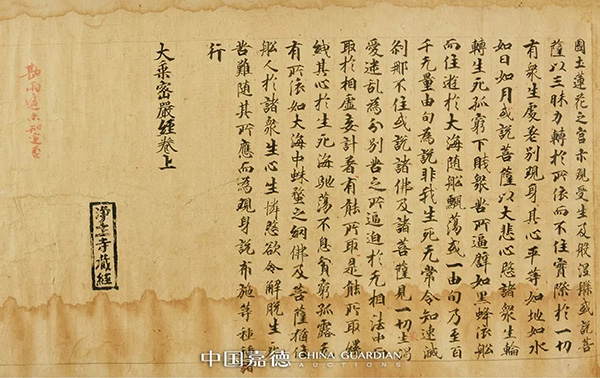 國土蓮花之宮示現受生及般涅槃或說菩
薩以三昧力轉於所依而不住實際於一切
有衆生處差別現身其心平等如地如水
如日如月或說菩薩以大悲心愍諸衆生輪
轉生死孤窮下賤衆苦所逼譬如黑蜂依舩
而住遊於大海随舩飄蕩或一由旬乃至百
千无量由旬為說非我生死无常令知速滅
刹那不住或說諸佛及諸菩薩見一切
愛迷乱為分別苦之所逼迫於无相法中
取於相虛妄計著有能所取是能所取纏
其心於生死海馳蕩不息貧窮孤露无
有所依如大海中蛛蝥之網佛及菩薩猶
舩人於諸衆生心生憐愍欲令解脫生死
苦難随其所應而為現身說布施等種
行
大乘密嚴經卷上
勘兩遍
淨土寺藏經
中国嘉德 CHINA GUARDIAN
AUCTIONS